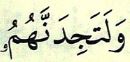 وَلَتَجِدَنَّهُمُۥ